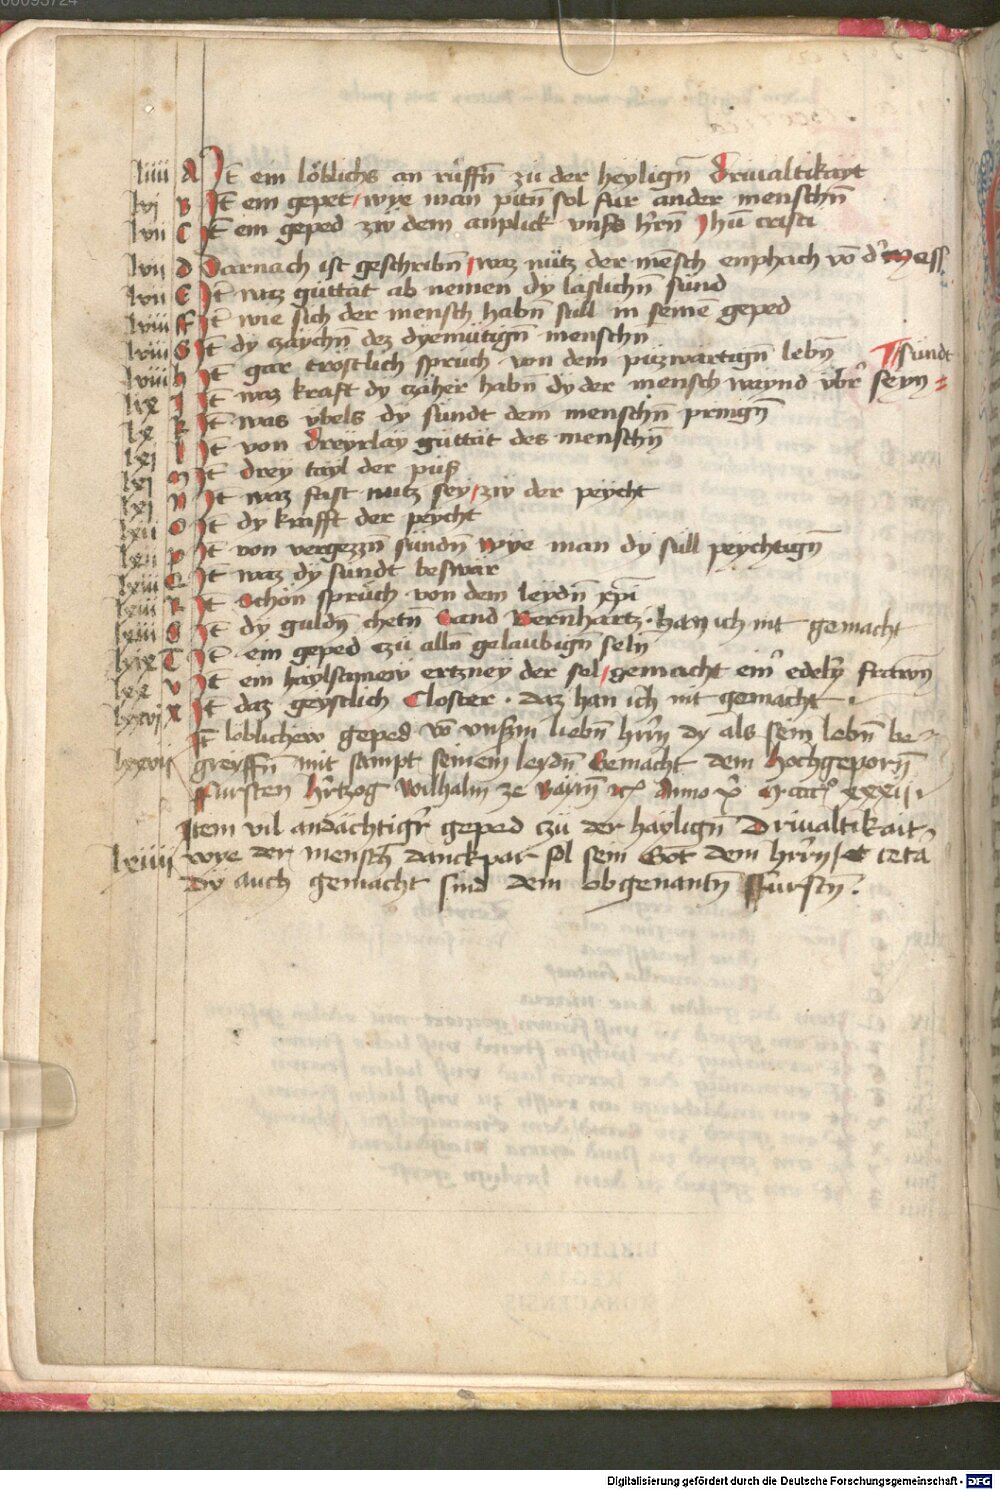 00093724
liiii A Jt̄ ein löblichs an rüffn̄ zů der heylign̄ Driualtikayt
lvj B Jt̄ ein gepet / wye man pittn̄ sol fur ander menschn̄
lvii C Jt̄ ein geped zw dem anplick vnsers h'rn̄ Jhū cristi
lvii D Darnach ist geschribn̄ / waz nütz der mensch enphach vō d' Mess
lvii E Jt̄ waz güttät ab nemen dy läslichn̄ sünd
lviii F Jt̄ wie sich der mensch habn̄ sull in seinē geped
lviii G Jt̄ dy czaychn̄ dez dyemütign̄ menschn
lviii h Jt̄ gar tröstlich sprüch von dem püzwärtign̄ lebn̄
lix J Jt̄ waz kraft dy czäher habn̄ dy der mensch waynd vbr' seyn sündt
lx K Jt̄ was vbels dy sündt dem menschn̄ pringn̄
lxj l Jt̄ von dreyrlay güttät des menschn̄
lxj M Jt̄ drey tayl der püß
lxj N Jt̄ waz fast nutz sey / zw der peycht
lxii O Jt̄ dy krafft der peycht
lxii P Jt̄ von vergezzn̄ sündn̄ wye man dy sull peychtign̄
lxiii Q Jt̄ waz dy sündt beswär
lxiii R Jt̄ Schön sprüch von dem leydn̄ xp̄i
lxiii S Jt̄ dy guldn̄ chetn̄ Sand Bernhartz · han ich nit gemacht
lxix T Jt̄ ein geped czü alln̄ gelaubign̄ seln̄
lxx v Jt̄ ein haylsamew ertzney der sel / gemacht ein' edeln̄ frawn̄
lxxvj x Jt̄ daz geystlich Closter · daz han ich nit gemacht ·
Jt̄ löblichew geped vō vnserm liebn̄ hrn̄ dy als sein lebn̄ be-
lxxvij greyffn̄ mit sampt seinem leydn̄ Gemacht dem hochgeporn̄
ffürsten h'rtzog Wilhalm ze Bairn̄ Anno xxxij ·
Jtem vil andächtig' geped czü der häylign̄ Driualtikait
wye der mensch danckpar sol sein Got dem hrn̄ / et ceta
dy auch gemacht sind dem obgenantn̄ ffürstn̄ ·
BIBLIOTHECA
REGIA
MONACENSIS
Digitalisierung gefördert durch die Deutsche Forschungsgemeinschaft - DFG